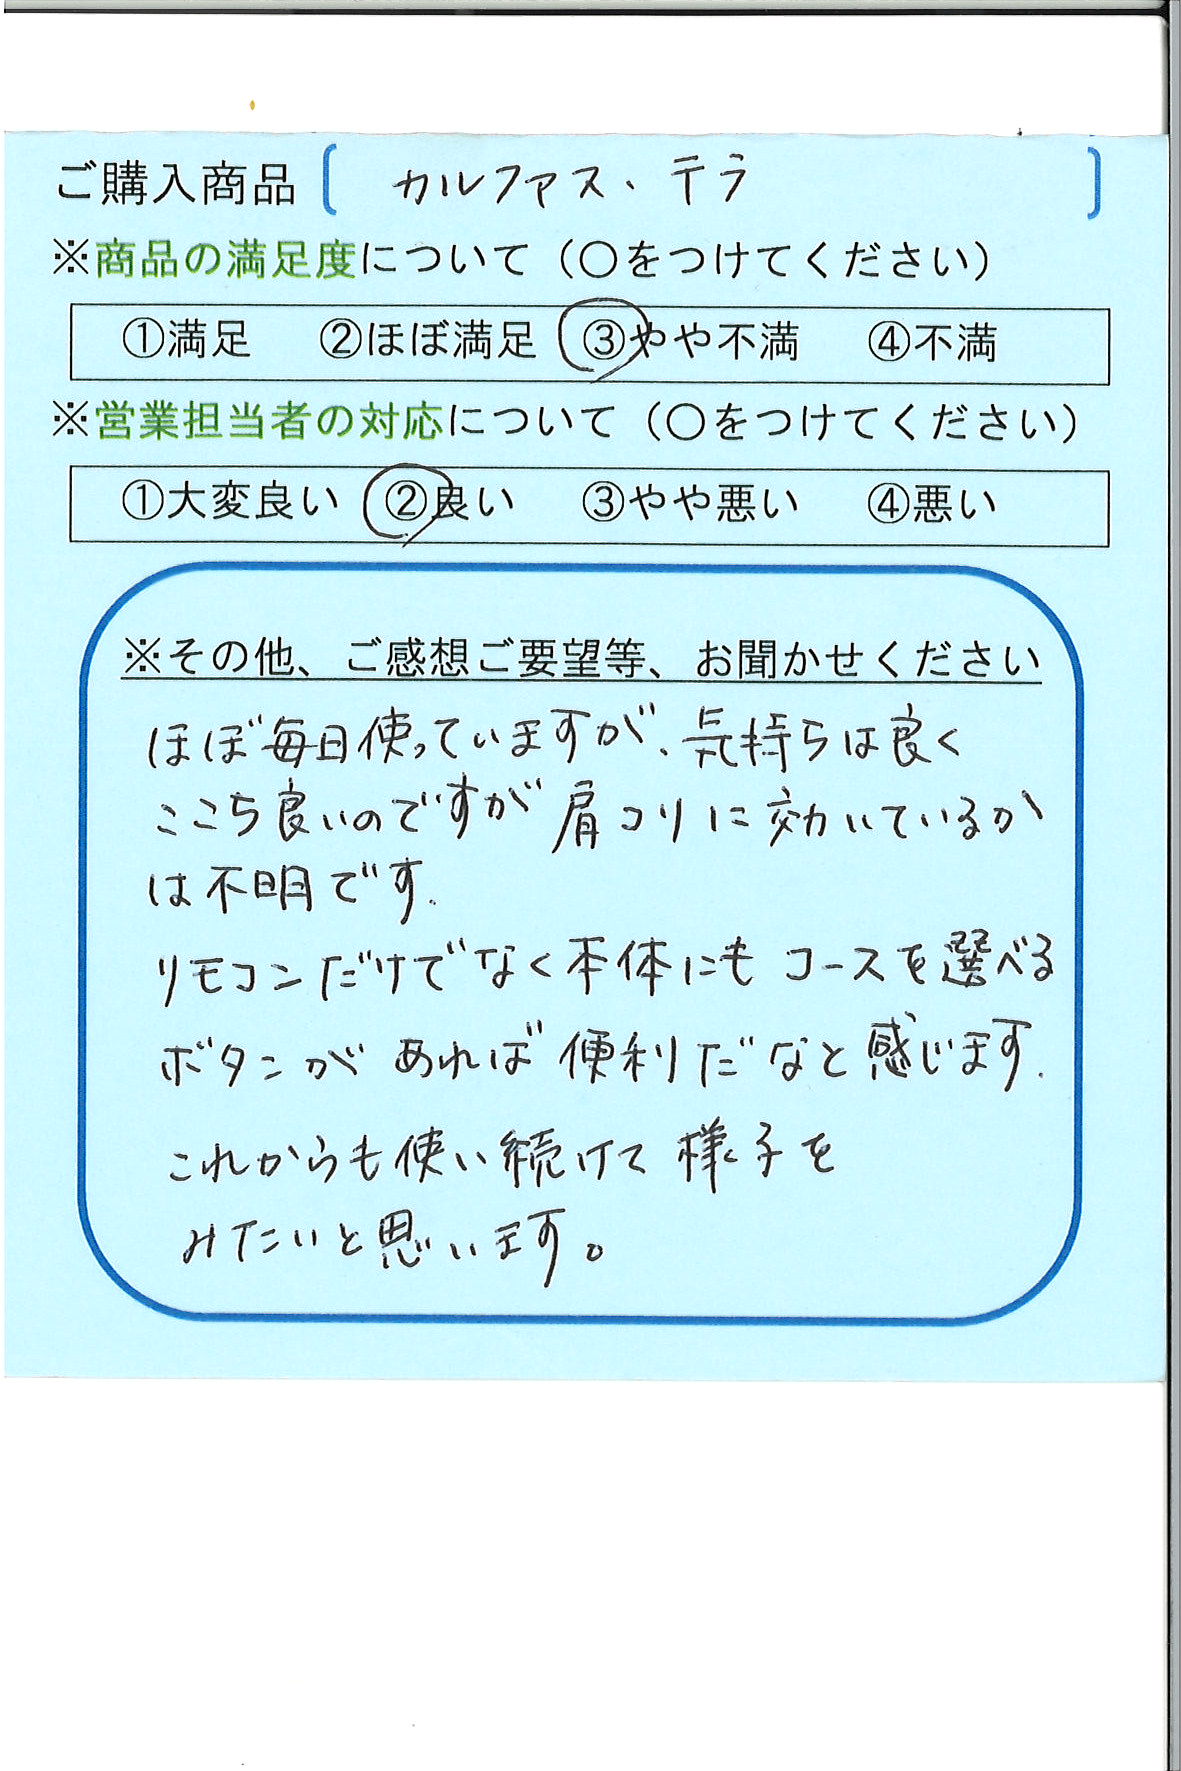 ご購入商品［ カルファス・テラ ］
※商品の満足度について（○をつけてください）
①満足 ②ほぼ満足 ③やや不満 ④不満
※営業担当者の対応について（○をつけてください）
①大変良い ②良い ③やや悪い ④悪い
※その他、ご感想ご要望等、お聞かせください
ほぼ毎日使っていますが、気持ちは良く
ここち良いのですが肩コリに効いているか
は不明です.
リモコンだけでなく本体にもコースを選べる
ボタンがあれば便利だなと感じます.
これからも使い続けて様子を
みたいと思います。